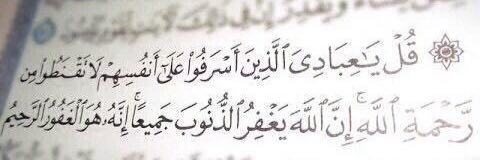 ۞ قُلْ يَٰعِبَادِىَ ٱلَّذِينَ أَسْرَفُوا۟ عَلَىٰٓ أَنفُسِهِمْ لَا تَقْنَطُوا۟ مِن
رَّحْمَةِ ٱللَّهِ ۚ إِنَّ ٱللَّهَ يَغْفِرُ ٱلذُّنُوبَ جَمِيعًا ۚ إِنَّهُۥ هُوَ ٱلْغَفُورُ ٱلرَّحِيمُ